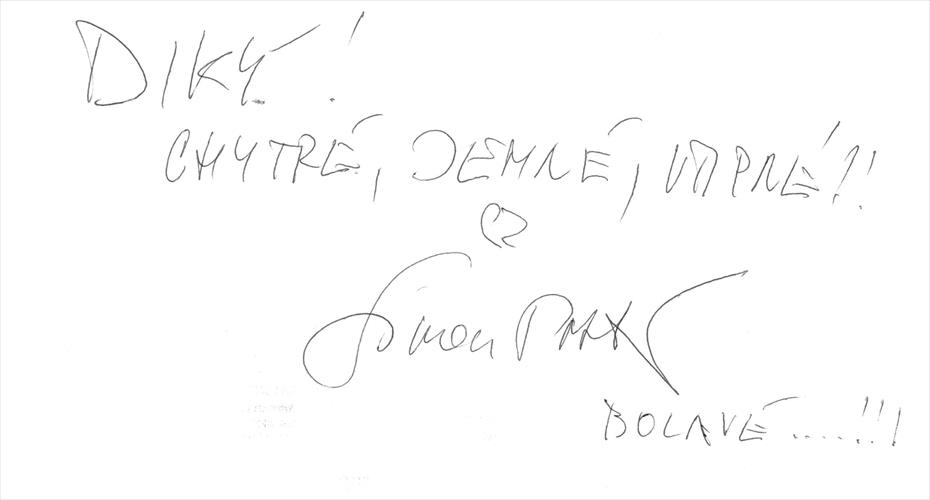 DÍKY!
CHYTRÉ, JEMNÉ, VTIPNÉ!!
Šimon
BOLAVÉ .....!!!